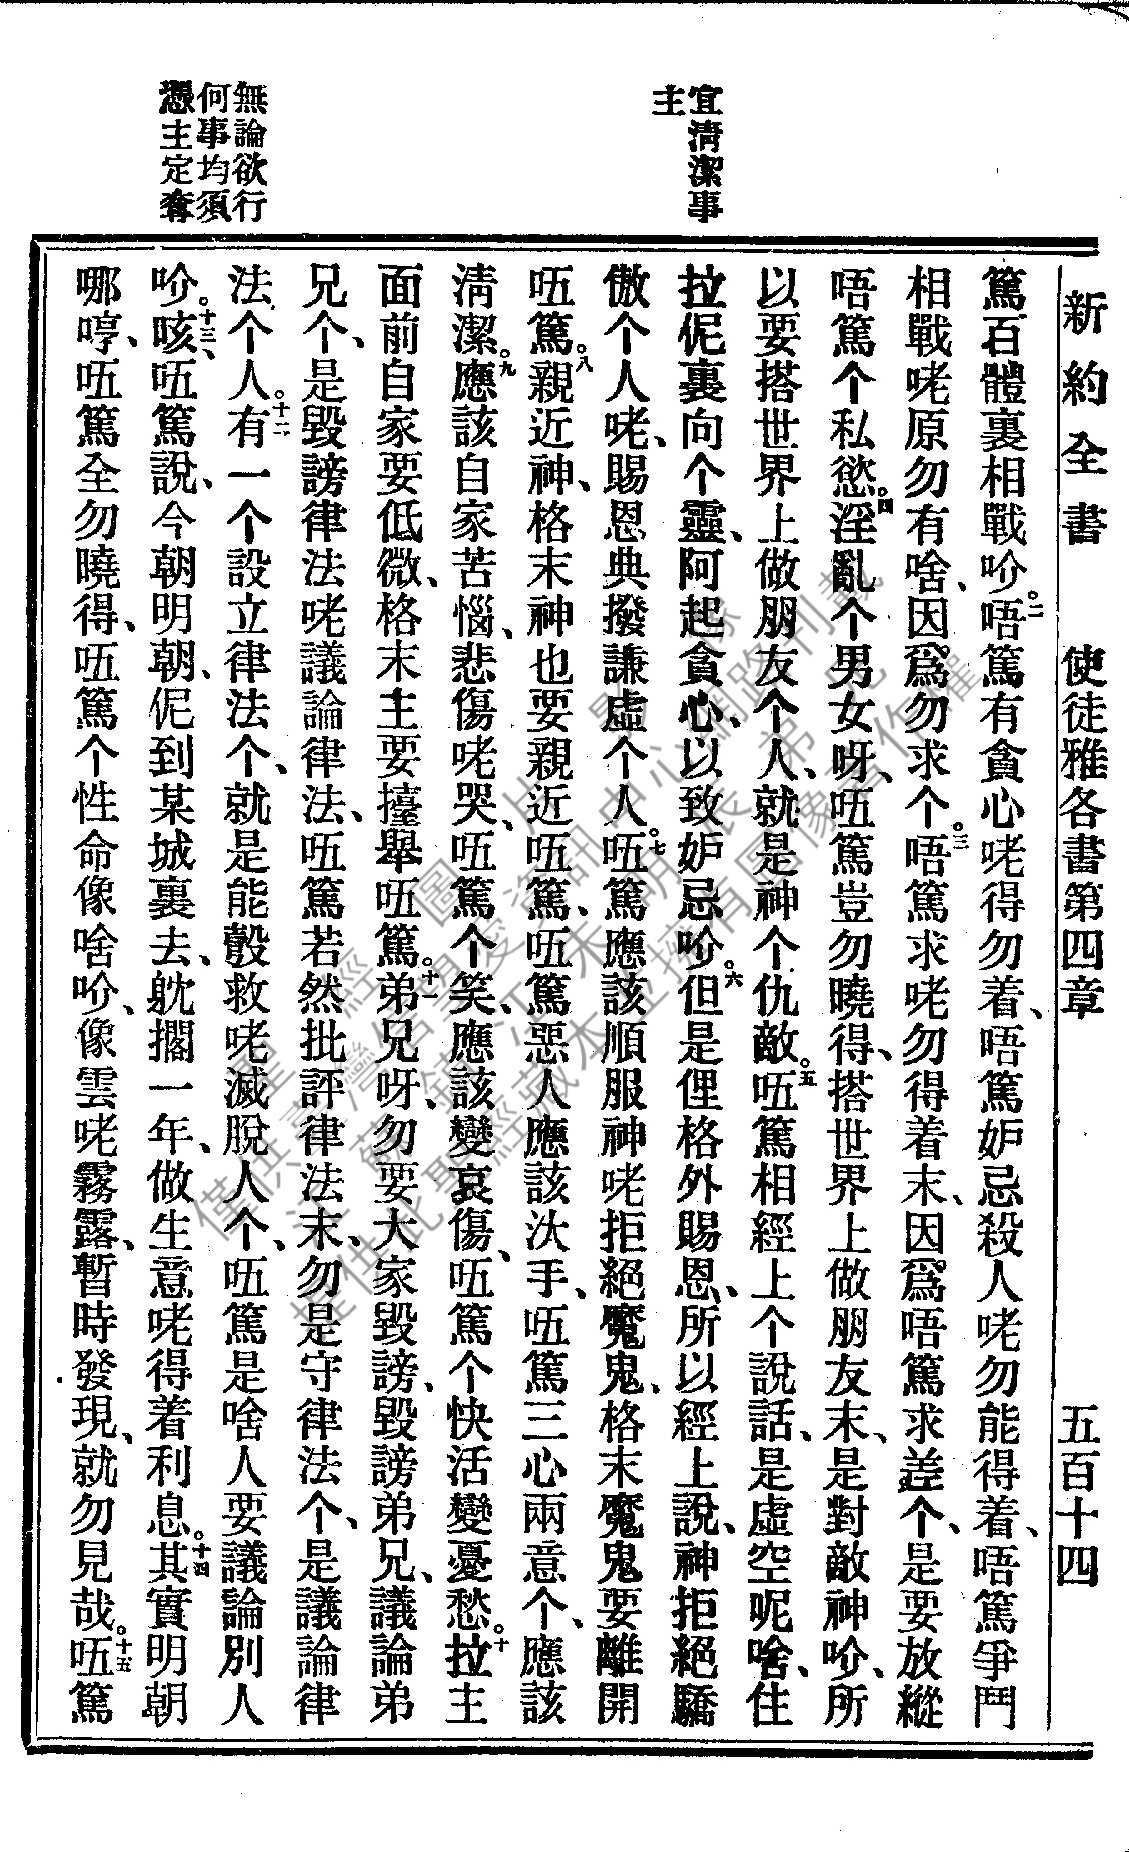 新約全書 使徒雅各書第四章 五百十四
宜清潔事
主
無論欲行
何事均須
憑主定奪
篤百體裏相戰吤。二唔篤有貪心咾得勿着、唔篤妒忌殺人咾勿能得着、唔篤爭鬥
相戰咾原勿有啥、因爲勿求个。三唔篤求咾勿得着末、因爲唔篤求差个、是要放縱
唔篤个私慾。四淫亂个男女呀、𠰻篤豈勿曉得、搭世界上做朋友末、是對敵神吤、所
以要搭世界上做朋友个人、就是神个仇敵。五𠰻篤相經上个說話、是虛空呢啥、住
拉伲裏向个靈、阿起貪心、以致妒忌吤。六但是俚格外賜恩、所以經上說、神拒絕驕
傲个人咾、賜恩典撥謙虛个人。七𠰻篤應該順服神咾拒絕魔鬼、格末魔鬼要離開
𠰻篤。八親近神、格末神也要親近𠰻篤、𠰻篤惡人應該汏手、𠰻篤三心兩意个、應該
清潔。九應該自家苦惱、悲傷咾哭、𠰻篤个笑、應該變哀傷、𠰻篤个快活變憂愁。十拉主
面前自家要低微、格末主要擡舉𠰻篤。十一弟兄呀、勿要大家毀謗、毀謗弟兄、議論弟
兄个、是毀謗律法咾議論律法、𠰻篤若然批評律法末、勿是守律法个、是議論律
法个人。十二有一个設立律法个、就是能彀救咾滅脫人个、𠰻篤是啥人要議論別人
吤。十三咳、𠰻篤說、今朝明朝、伲到某城裏去、躭擱一年、做生意咾得着利息。十四其實明朝
哪哼、𠰻篤全勿曉得、𠰻篤个性命像啥吤、像雲咾霧露、暫時發現、就勿見哉。十五𠰻篤